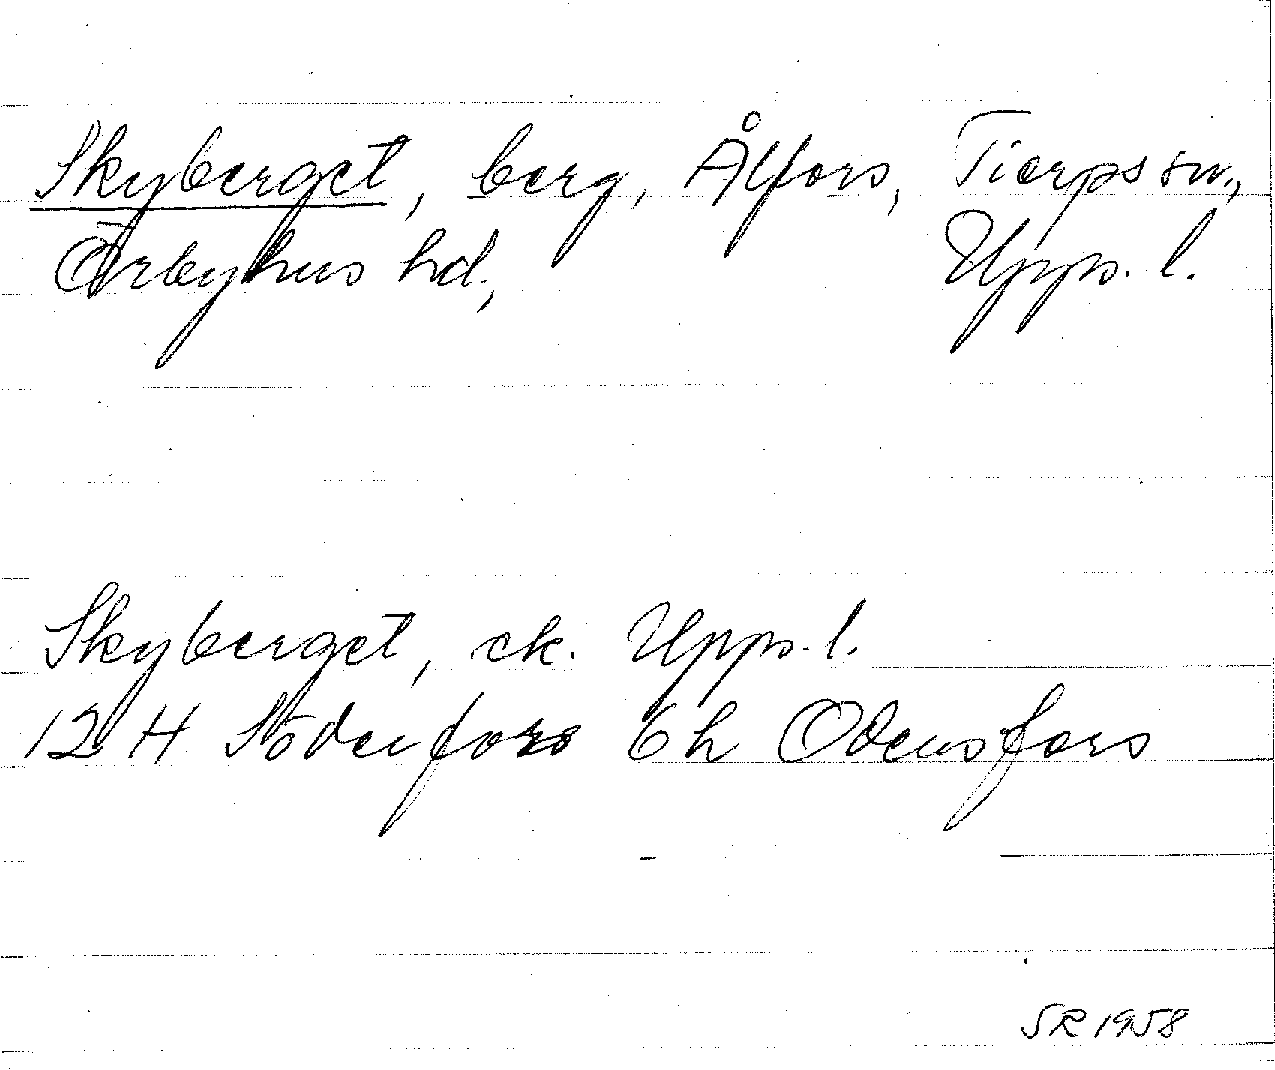 Skyberget, berg, Ålfors, Tierps sn.,
Örbyhus hd, Upps. l.
Skyberget, ek. Upps. l.
12 H Söderfors 6h Odensfors
SR 1958